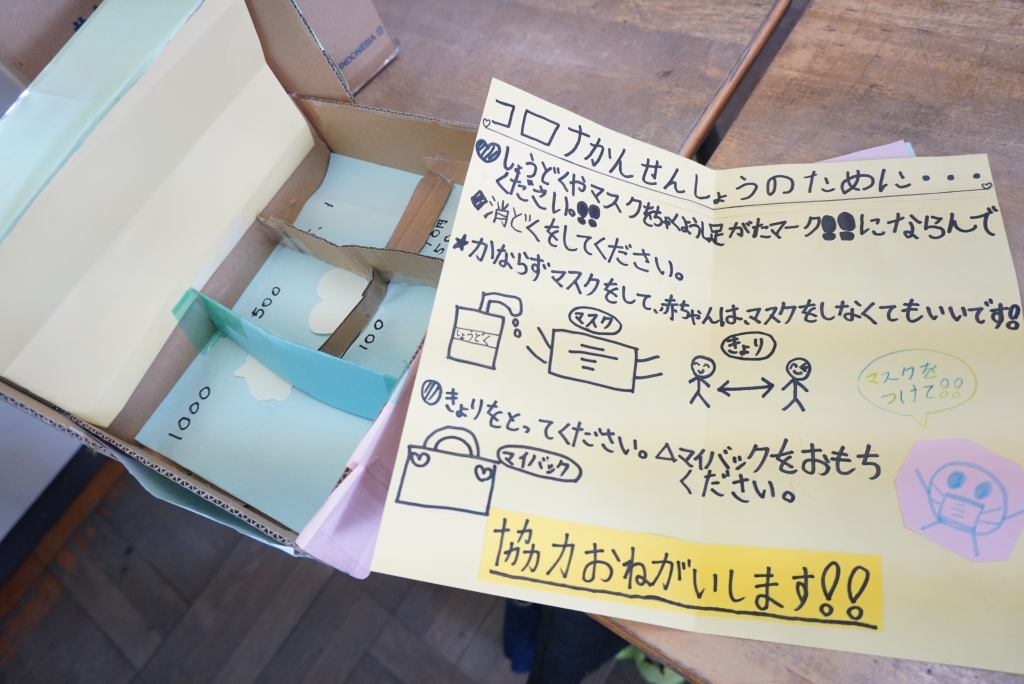 INDONESIA
1
10円
50
500
100
1000
コロナかんせんしょうのために・・・
しょうどくやマスクをちゃくようし足がたマーク!!にならんで
ください。!!
◆消どくをしてください。
★かならずマスクをして、赤ちゃんは、マスクをしなくてもいいです!
しょうどく
マスク
きょり
マスクを
つけて!!
きょりをとってください。
△マイバックをおもち
ください。
マイバック
協力おねがいします!!